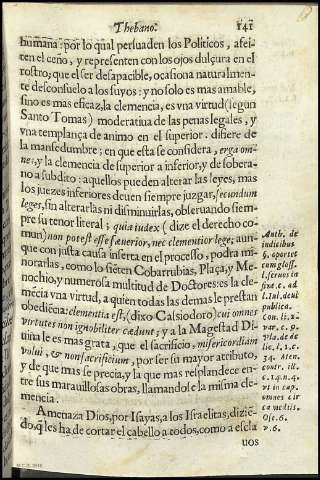 Thebano. 141
humana: por lo qual persuaden los Politicos, afei-
ten el ceño, y representen con los ojos dulçura en el
rostro; que el ser desapacible, ocasiona naturalmen-
te desconsuelo a los suyos: y no solo es mas amable,
sino es mas eficaz, la clemencia, es vna virtud (segun
Santo Tomas) moderatiua de las penas legales, y
vna templança de animo en el superior. difiere de
la mansedumbre; en que esta se considera, erga om-
nes:, y la clemencia de superior a inferior, y de sobera-
no a subdito: aquellos pueden alterar las leyes, mas
los juezes inferiores deuen siempre juzgar, secundum
leges, sin alterarlas ni disminuirlas, obseruando siem-
pre su tenor literal; quia iudex (dize el derecho co-
mun) non potest esse sæuerior, nec clementior lege; aun-
que con justa causa inserta en el processo, podra mi-
norarlas, como lo siẽten Cobarrubias, Plaça, y Me-
nochio, y numerosa multitud de Doctores: es la cle-
mẽcia vna virtud, a quien todas las demas le prestan
obediẽcia: clementia est, (dixo Calsiodoro) cui omnes
virtutes non ignobiliter cædunt; y a la Magestad Di-
uina le es mas grata, que el sacrificio, misericordiam
volui, & non sacrificium, por ser su mayor atributo,
y de que mas se precia, y la que mas resplandece en-
tre sus marauillosas obras, llamandose la misma cle-
mencia.
Amenaza Dios, por Isayas, a los Israelitas, diziẽ-
do, q̃ les ha de cortar el cabello a todos, como a escla
uos
Auth. de
iudicibus
§. oportet
cum gloss.
l. seruos in
fine. c. ad
l. Iul. de vi
publica.
Con. li. 2.
var. c. 9.
Pla. de de
lic. l. 1. c.
34. Men.
contr. ill.
c. 14. n. 4.
vt in cap.
omnes cir
ca metiis.
Ose. 6.
v. 6.